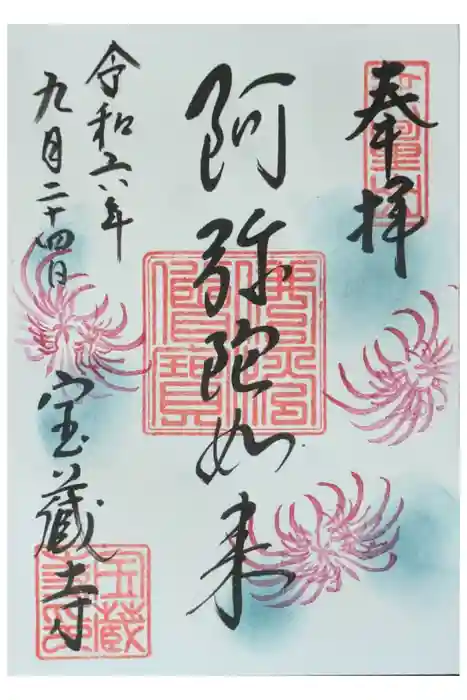 奉拝
阿弥陀如来
令和六年
九月二十四日
宝蔵寺
佛法僧寶